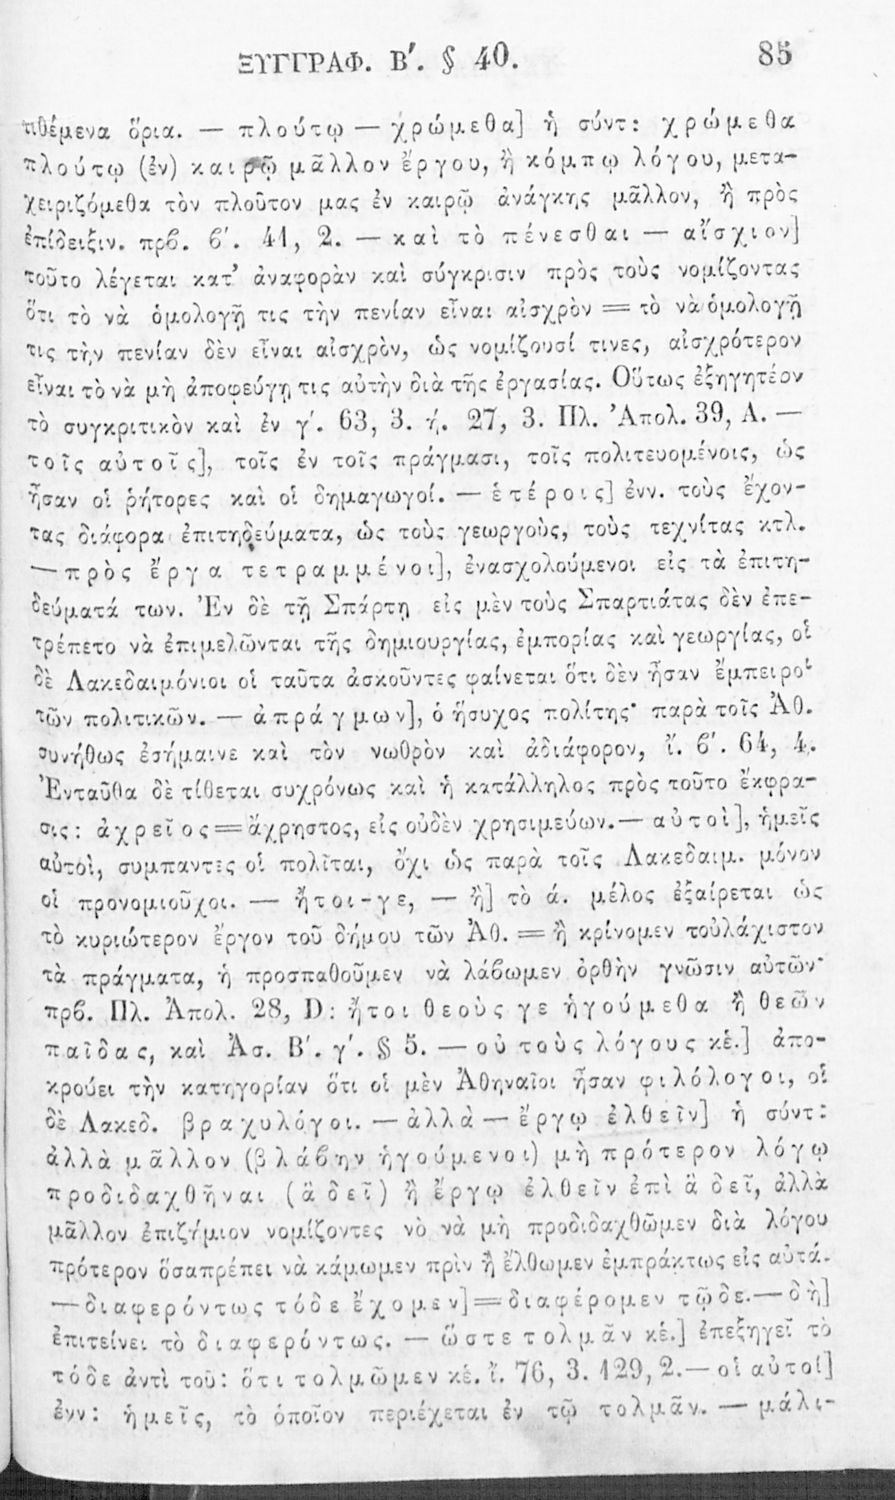 ΞΥΓΓΡΑΦ. Β΄. § 40. 85
τιθέμενα ὅρια. — πλούτῳ — χρώμεθα] ἡ σύντ: χρώμεθα
πλούτῳ (ἐν) καιρῷ μᾶλλον ἔργου, ἢ κόμπῳ λόγου, μετα-
χειριζόμεθα τὸν πλοῦτον μας ἐν καιρῷ ἀνάγκης μᾶλλον, ἢ πρὸς
ἐπίδειξιν. πρβ. β΄. 41, 2. — καὶ τὸ πένεσθαι — αἴσχιον]
τοῦτο λέγεται κατ’ ἀναφορὰν καὶ σύγκρισιν πρὸς τοὺς νομίζοντας
ὅτι τὸ νὰ ὁμολογῇ τις τὴν πενίαν εἶναι αἰσχρὸν = τὸ νὰ ὁμολογῇ
τις τὴν πενίαν δὲν εἶναι αἰσχρὸν, ὡς νομίζουσί τινες, αἰσχρότερον
εἶναι τὸ νὰ μὴ ἀποφεύγῃ τις αὐτὴν διὰ τῆς ἐργασίας. Οὕτως ἐξηγητέον
τὸ συγκριτικὸν καὶ ἐν γ΄. 63, 3. ή. 27, 3. Πλ. Ἀπολ. 39, Α. —
τοῖς αὐτοῖς], τοῖς ἐν τοῖς πράγμασι, τοῖς πολιτευομένοις, ὡς
ἦσαν οἱ ῥήτορες καὶ οἱ δημαγωγοί. — ἑτέροις] ἐνν. τοὺς ἔχον-
τας διάφορα ἐπιτηδεύματα, ὡς τοὺς γεωργοὺς, τοὺς τεχνίτας κτλ.
— πρὸς ἔργα τετραμμένοι], ἐνασχολούμενοι εἰς τὰ ἐπιτη-
δεύματά των. Ἐν δὲ τῇ Σπάρτῃ εἰς μὲν τοὺς Σπαρτιάτας δὲν ἐπε-
τρέπετο νὰ ἐπιμελῶνται τῆς δημιουργίας, ἐμπορίας καὶ γεωργίας, οἱ
δὲ Λακεδαιμόνιοι οἱ ταῦτα ἀσκοῦντες φαίνεται ὅτι δὲν ἦσαν ἔμπειροι
τῶν πολιτικῶν. — ἀπράγμων], ὁ ἥσυχος πολίτης· παρὰ τοῖς Ἀθ.
συνήθως ἐσήμαινε καὶ τὸν νωθρὸν καὶ ἀδιάφορον, ἴ. β΄. 64, 4.
Ἐνταῦθα δὲ τίθεται συχρόνως καὶ ἡ κατάλληλος πρὸς τοῦτο ἔκφρα-
σις: ἀχρεῖος = ἄχρηστος, εἰς οὐδὲν χρησιμεύων. — αὐτοὶ], ἡμεῖς
αὐτοὶ, συμπαντες οἱ πολῖται, ὄχι ὡς παρὰ τοῖς Λακεδαιμ. μόνον
οἱ προνομιοῦχοι. — ἤτοι-γε, — ἢ] τὸ ά. μέλος ἐξαίρεται ὡς
τὸ κυριώτερον ἔργον τοῦ δήμου τῶν Ἀθ. = ἢ κρίνομεν τοὐλάχιστον
τὰ πράγματα, ἡ προσπαθοῦμεν νὰ λάβωμεν ὀρθὴν γνῶσιν αὐτῶν·
πρβ. Πλ. Ἀπολ. 28, D: ἤτοι θεοὺς γε ἡγούμεθα ἢ θεῶν
παῖδας, καὶ Ἀσ. Β΄. γ΄. § 5. — οὐ τοὺς λόγους κἑ.] ἀπο-
κρούει τὴν κατηγορίαν ὅτι οἱ μὲν Ἀθηναῖοι ἦσαν φιλόλογοι, οἱ
δὲ Λακεδ. βραχυλόγοι. — ἀλλὰ — ἔργῳ ἐλθεῖν] ἡ σύντ:
ἀλλὰ μᾶλλον (βλάβην ἡγούμενοι) μὴ πρότερον λόγῳ
προδιδαχθῆναι (ἃ δεῖ) ἢ ἔργῳ ἐλθεῖν ἐπὶ ἃ δεῖ, ἀλλὰ
μᾶλλον ἐπιζήμιον νομίζοντες νὸ νὰ μὴ προδιδαχθῶμεν διὰ λόγου
πρότερον ὅσαπρέπει νὰ κάμωμεν πρὶν ἢ ἔλθωμεν ἐμπράκτως εἰς αὐτά.
— διαφερόντως τόδε ἔχομεν] = διαφέρομεν τῷδε. — δὴ]
ἐπιτείνει τὸ διαφερόντως. — ὥστε τολμᾶν κἑ.] ἐπεξηγεῖ τὸ
τόδε ἀντὶ τοῦ: ὅτι τολμῶμεν κἑ. ἴ. 76, 3. 129, 2. — οἱ αὐτοί]
ἐνν: ἡμεῖς, τὸ ὁποῖον περιέχεται ἐν τῷ τολμᾶν. — μάλι-